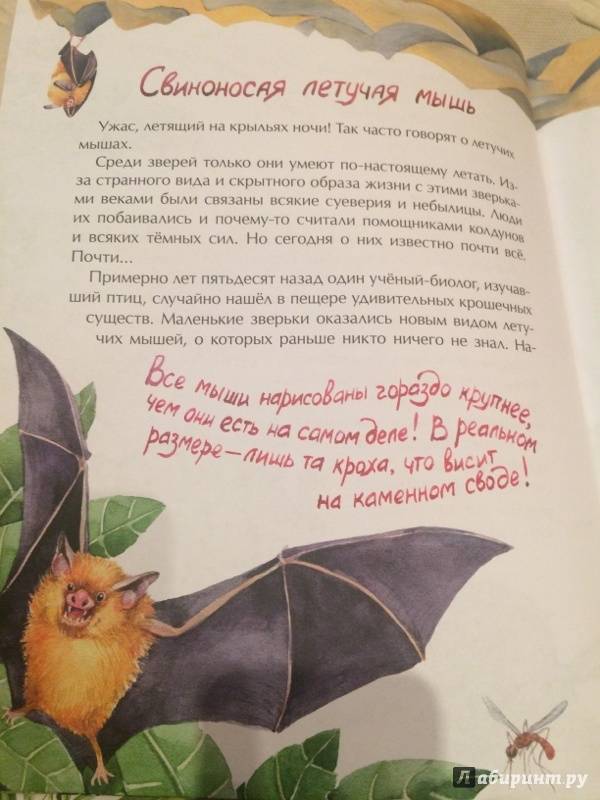 Свиноносая летучая мышь
Ужас, летящий на крыльях ночи! Так часто говорят о летучих
мышах.
Среди зверей только они умеют по-настоящему летать. Из-
за странного вида и скрытного образа жизни с этими зверька-
ми веками были связаны всякие суеверия и небылицы. Люди
их побаивались и почему-то считали помощниками колдунов
и всяких тёмных сил. Но сегодня о них известно почти всё.
Почти...
Примерно лет пятьдесят назад один учёный-биолог, изучав-
ший птиц, случайно нашёл в пещере удивительных крошечных
существ. Маленькие зверьки оказались новым видом лету-
чих мышей, о которых раньше никто ничего не знал. На-
Все мыши нарисованы гораздо крупнее,
чем они есть на самом деле! В реальном
размере – лишь та кроха, что висит
на каменном своде!
Лабиринт.ру